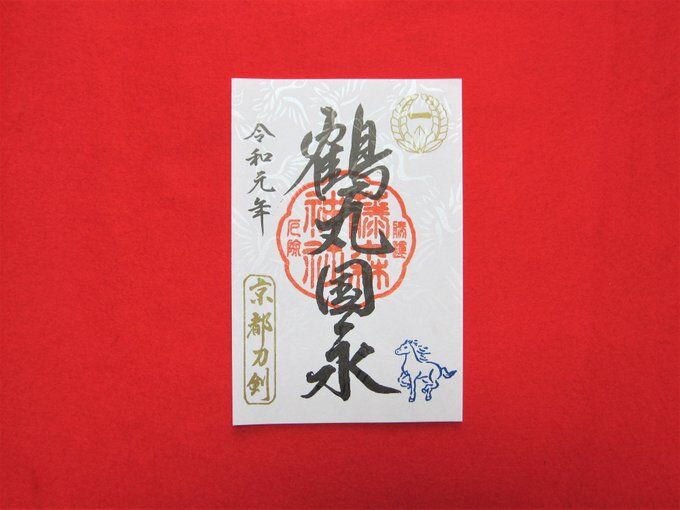 鶴丸国永
令和元年
京都刀剣
藤森神社
勝運
厄除
一